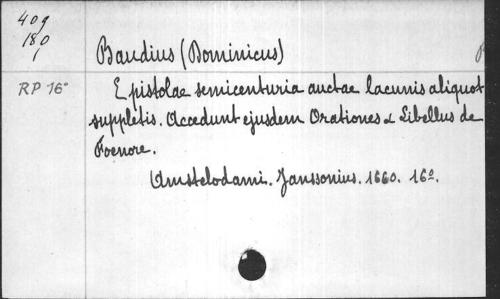 409
180
1
Baudius (Dominicus)
RP 16°
Epistolae semicenturia auctae lacunis aliquot
suppletis. Accedunt ejusdem Orationes & Libellus de
Foenore.
Amstelodami. Janssonius. 1660. 16°.